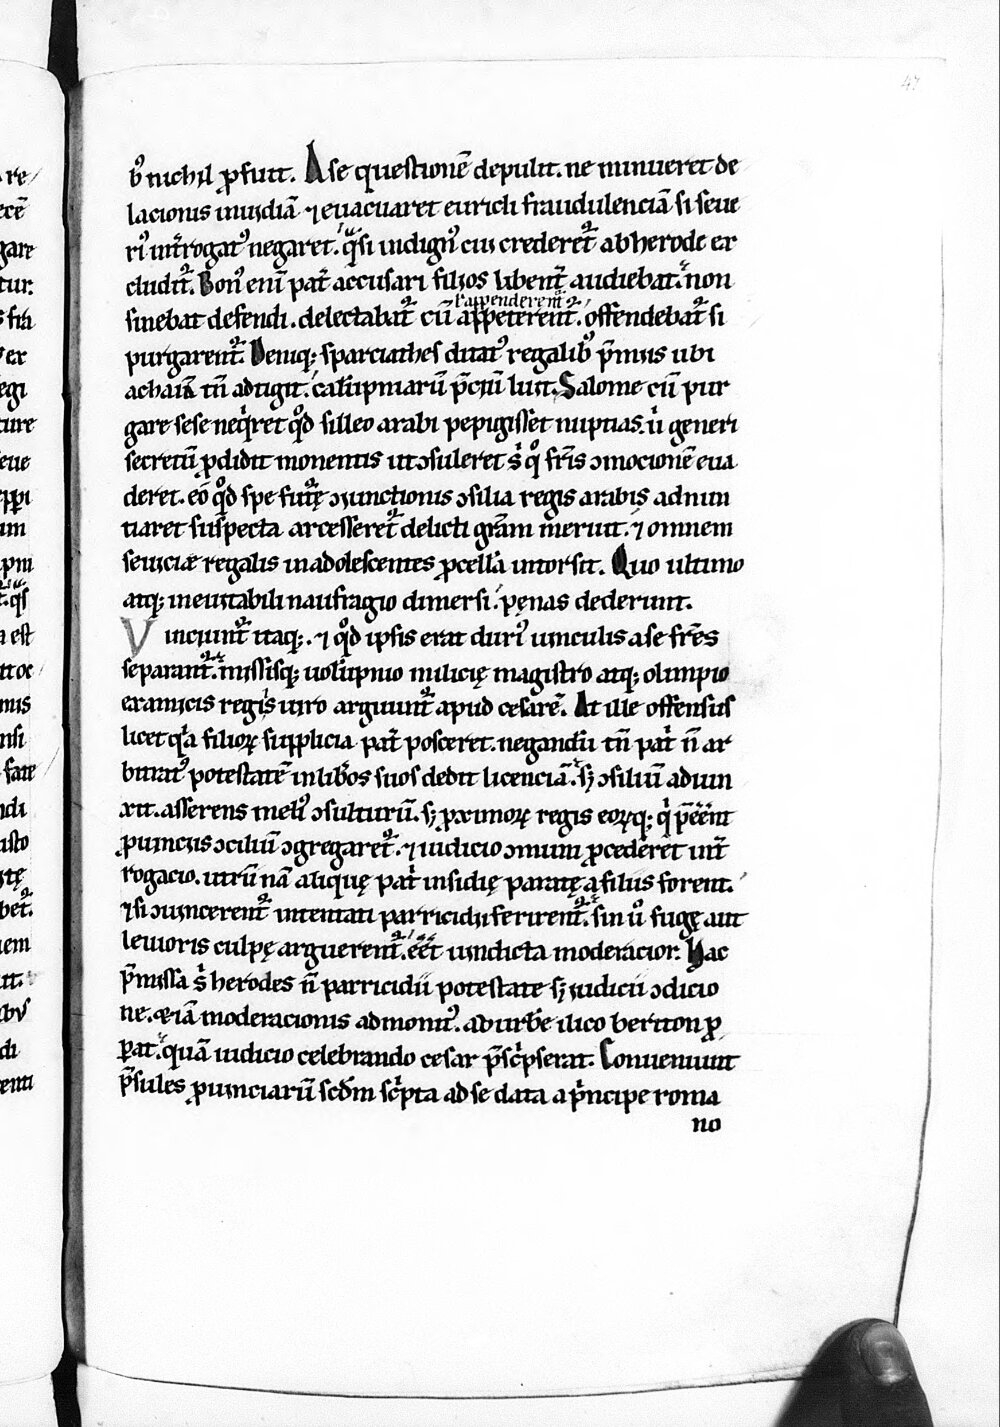 47
b᷒ nichil ꝓfuit. A se questionē depulit. ne minueret de
lacionis inuidiā ⁊ euacuaret euricli fraudulenciā si seue
ri᷒ int̄rogat᷒ negaret. q̄si indign᷒ cui crederet᷑ ab herode ex
cludit᷑. Bon᷒ enī pat̄ accusari filios libent̄ audiebat. non
sinebat defendi. delectabat᷑ cū appeterent᷑. offendebat᷑ si
ł appenderent᷑
purgarent᷑. Deniq; sparciathes ditat᷒ regalib᷒ p̄miis ubi
achaiā tn̄ adtigit. calūpniarū p̄ciū luit. Salome cū pur
gare sese neq̇ret qd̊ silleo arabi pepigisset nuptias. ů generi
secretū ꝓdidit monentis ut ɔsuleret s' qͦ fr̄is ɔmocionē eua
deret. eō qd̊ spe futurę ɔiunctionis ɔsilia regis arabis adnun
tiaret suspecta arcesseret᷑ delicti grām meruit. ⁊ omnem
seuiciæ regalis in adolescentes ꝓcellā intorsit. Quo ultimo
atq; ineuitabili naufragio dimersi. pęnas dederunt.
Vinciunt᷑ itaq;. ⁊ qd̊ ipsis erat duri᷒ uinculis a se fr̄es
separant᷑. missisq; uolūpnio milicię magistro atq; olimpio
ex amicis regis uiro arguunt᷑ apud cesarē. At ille offensus
licet q̇a filioꝝ supplicia pat̄ posceret. negandū tn̄ pat̄ n̄ ar
bitrat᷒ potestatē in lib̄os suos dedit licenciā. sꝫ ɔsiliū adiun
xit. asserens meli᷒ ɔsulturū. sꝫ ꝓximoꝝ regis eoꝝq; q̇ p̄eēnt
ꝓuinciis ɔciliū ɔgregaret᷑. ⁊ iudicio ɔmuni ꝓcederet int̄
rogacio. utrū nā aliquę pat̄ insidię paratę a filiis forent.
⁊ si ɔuincerent᷑ intentati parricidii ferirent᷑. sin ů fugę aut
leuioris culpę arguerent᷑. eēt uindicta moderacior. Hac
p̄missa s' herodes n̄ parricidii potestate sꝫ iudicii ɔdicio
ne. eciā moderacionis admonit᷒. ad urbē ilico beriton ꝓ
ꝑat. quā iudicio celebrando cesar p̄sc̓pserat. Conueniunt
p̄sules ꝓuinciarū scd̄m sc̓pta ad se data a p̓ncipe roma
no